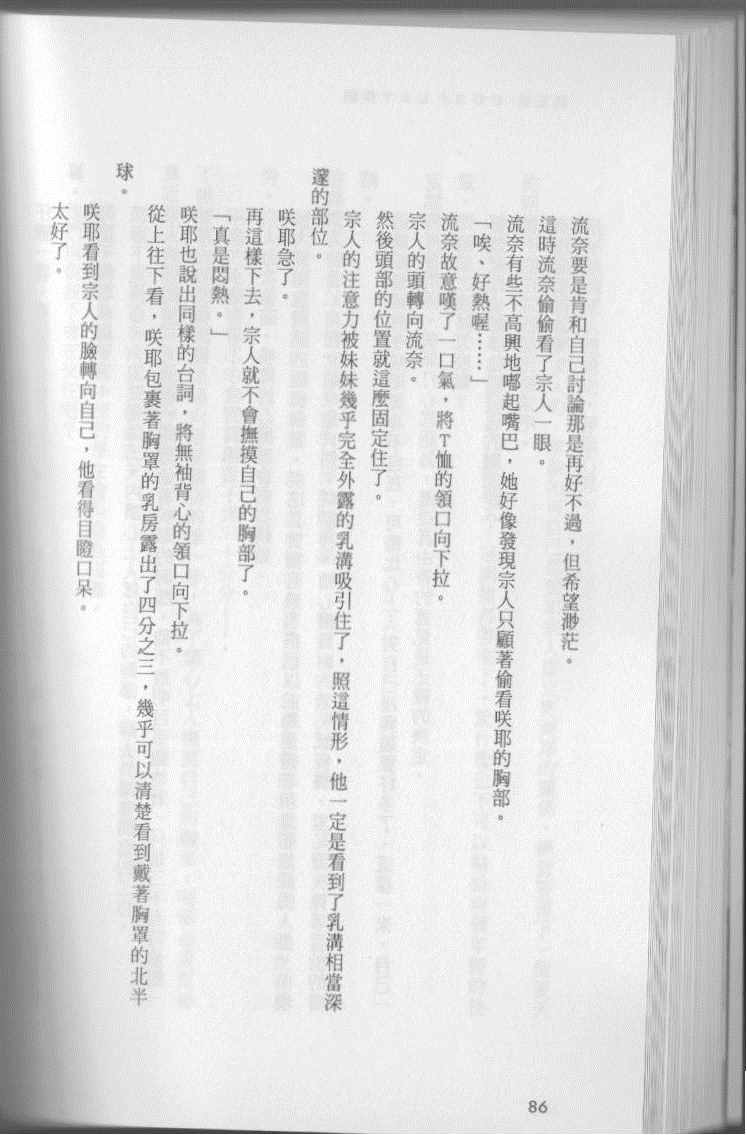 流奈要是肯和自己討論那是再好不過，但希望渺茫。
這時流奈偷偷看了宗人一眼。
流奈有些不高興地嘟起嘴巴，她好像發現宗人只顧著偷看咲耶的胸部。
「唉、好熱喔……」
流奈故意嘆了一口氣，將T恤的領口向下拉。
宗人的頭轉向流奈。
然後頭部的位置就這麼固定住了。
宗人的注意力被妹妹幾乎完全外露的乳溝吸引住了，照這情形，他一定是看到了乳溝相當深
邃的部位。
咲耶急了。
再這樣下去，宗人就不會撫摸自己的胸部了。
「真是悶熱。」
咲耶也說出同樣的台詞，將無袖背心的領口向下拉。
從上往下看，咲耶包裹著胸罩的乳房露出了四分之三，幾乎可以清楚看到戴著胸罩的北半
球。
咲耶看到宗人的臉轉向自己，他看得目瞪口呆。
太好了。
86